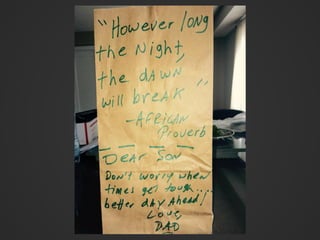 "However long
the Night,
the dawn
will break"
- African
Proverb
Dear Son
Don't worry when
times get tough...
better day Ahead!
Love,
DAD